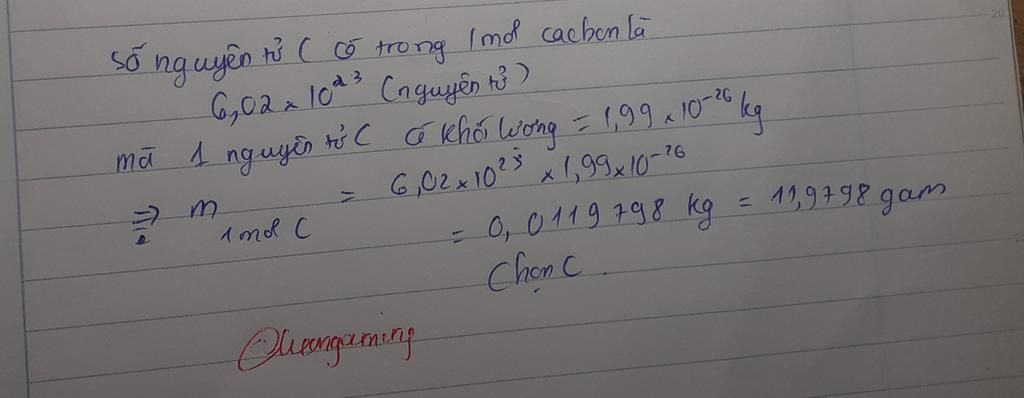 Số nguyên tử C có trong 1mol cacbon là
6,02 × 10²³ (nguyên tử)
mà 1 nguyên tử C có khối lương = 1,99 × 10⁻²⁶ kg
⇒ m 1mol C = 6,02 × 10²³ × 1,99 × 10⁻²⁶
= 0,0119798 kg = 11,9798 gam
Chọn C.